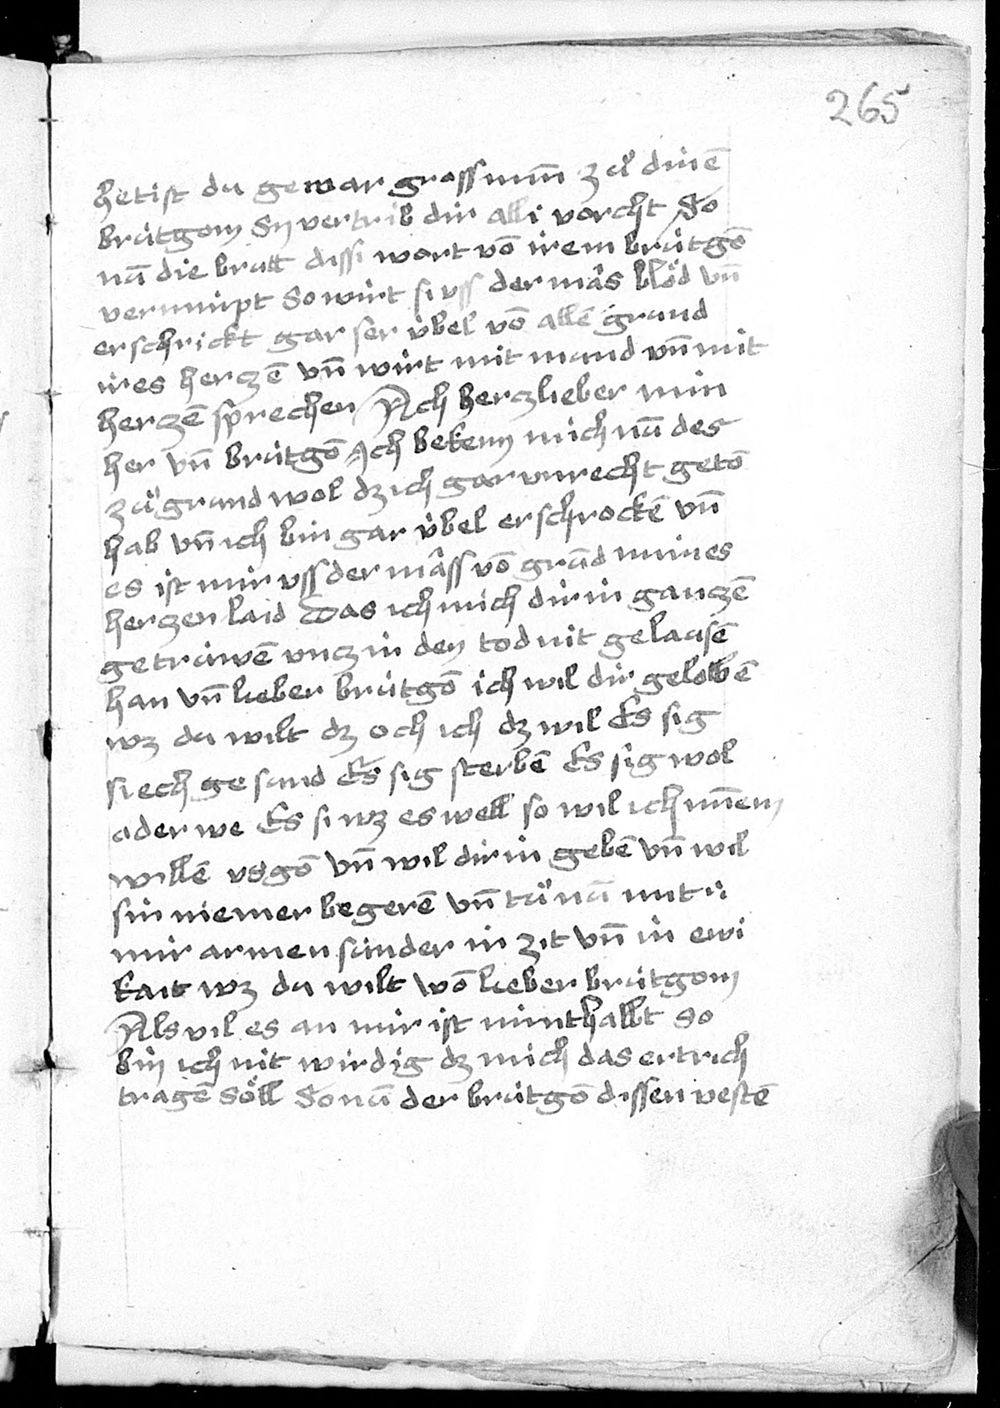 265
hetist du gewar gross minn zů dinē
brútgom Sy vertrib dir alli vorcht So
nū die brutt dissi wort vō irem brútgō
vernnirpt So wirt si uss der mâs blöd vn̄
erschrickt gar ser úbel vō allē grund
ires herczē vn̄ wirt mit mund vn̄ mit
herczē sprechen Ach herczlieber min
her vn̄ brútgō Ich bekeny mich nū des
zů grund wol dz ich gar vnrecht getō
hab vn̄ ich bin gar úbel erschrockē vn̄
es ist mir uss der mâss vō grūd mines
herczen laid Das ich mich dir in ganczē
getrúwē vncz in den tod nit gelausē
han vn̄ lieber brútgō ich wil dir gelobē
wz du wilt dz och ich dz wil Es sig
siech gesund Es sig sterbē Es sig wol
ader we Es si wz es well so wil ich minem
willē usgō vn̄ wil dir in gebē vn̄ wil
sin niemer begerē vn̄ tů nū mit
mir armen súnder in zit vn̄ in ewi
kait wz du wilt wō lieber brútgom
Als vil es an mir ist minthalbt So
bin ich nit wirdig dz mich das ertrich
tragē söll So nū der brútgō dissen vestē